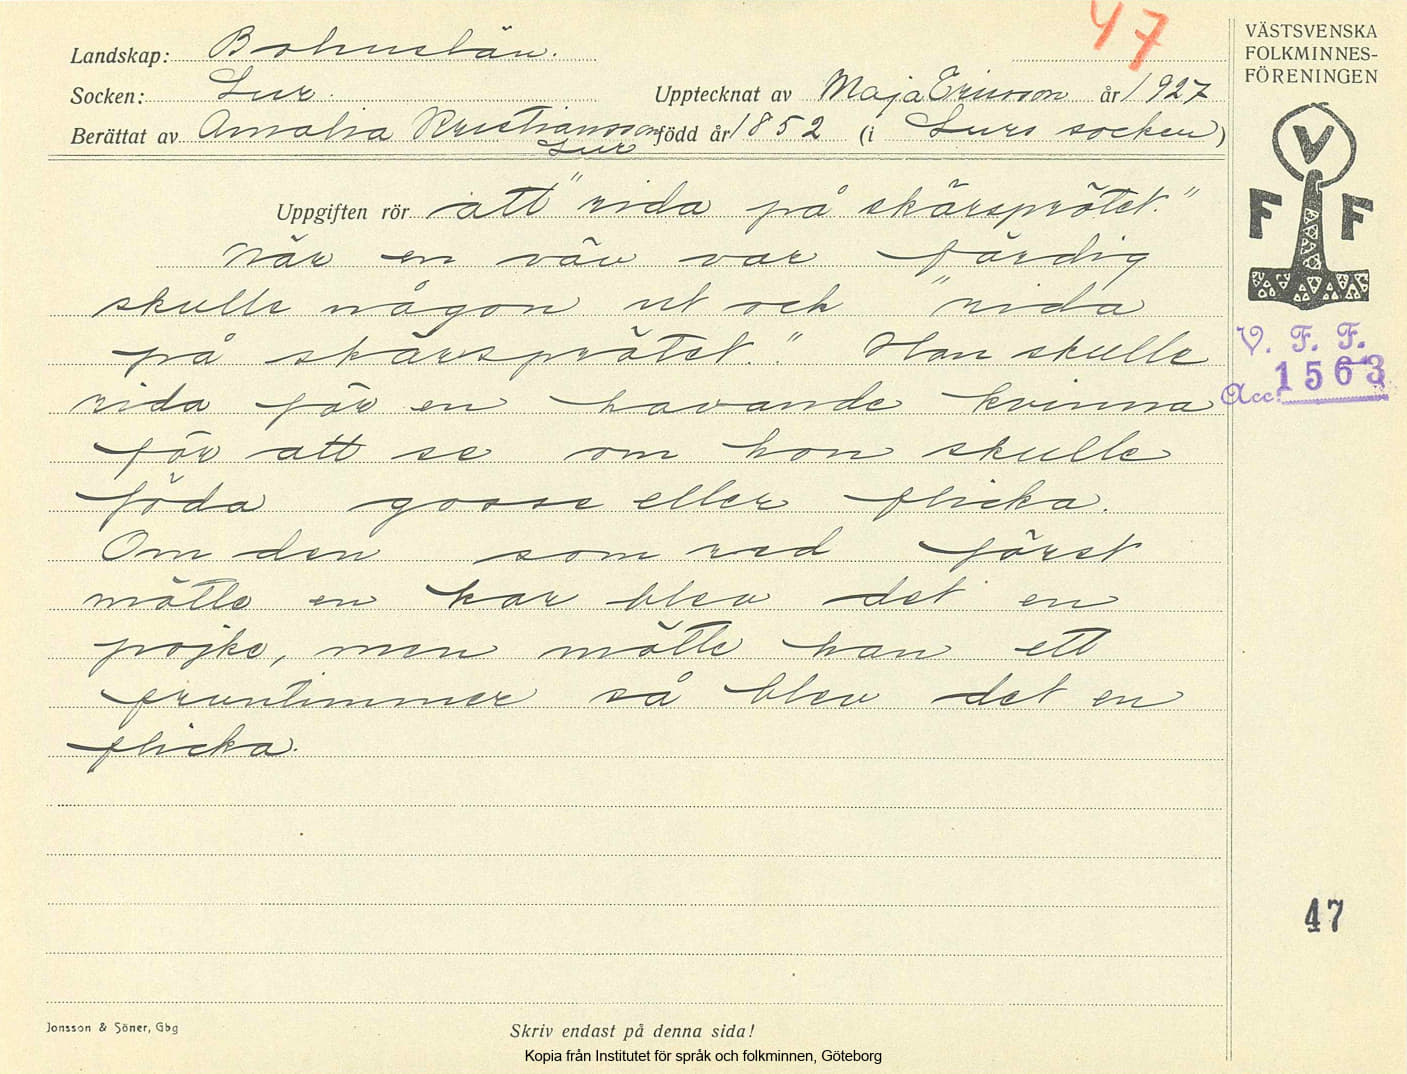 47
Landskap: Bohuslän.
Socken: Lur. Upptecknat av Maja Ericsson år 1927
Berättat av Amalia Kristiansson född år 1852 (i Lurs socken)
Lur
Uppgiften rör att "rida på skärsprötet."
När en väv var färdig
skulle någon ut och "rida
på skärsprötet." Han skulle
rida för en havande kvinna
för att se om hon skulle
föda gosse eller flicka.
Om den som red först
mötte en kar blev det en
pojke, men mötte han ett
fruntimmer så blev det en
flicka.
VÄSTSVENSKA
FOLKMINNES-
FÖRENINGEN
V
F F
V. F. F.
Acc. 1563
47
Jonsson & Söner, Gbg
Skriv endast på denna sida!
Kopia från Institutet för språk och folkminnen, Göteborg